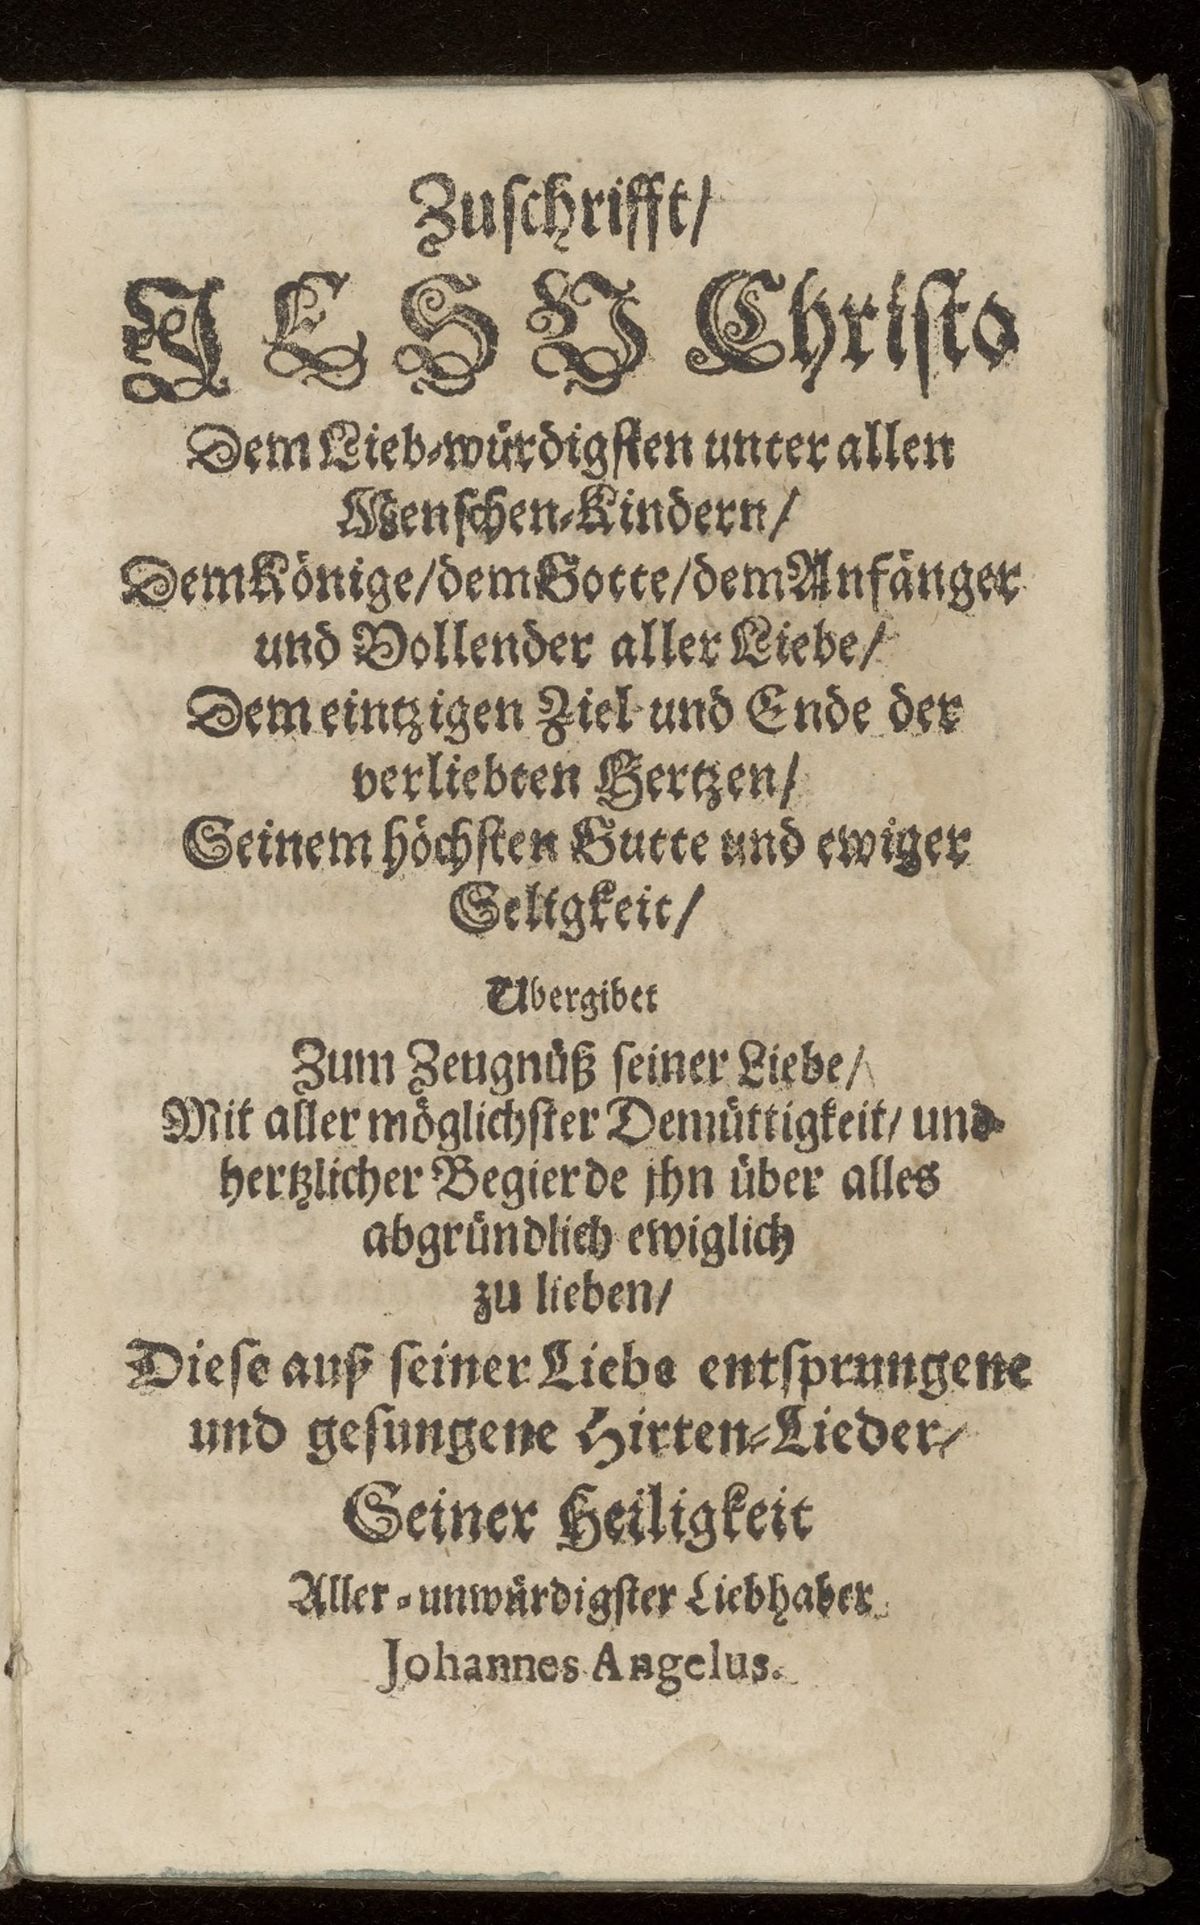 Zuſchrifft/
JESV Chriſto
Dem Lieb-würdigſten unter allen
Menſchen-Kindern/
Dem Könige/dem Gotte/dem Anfänger
und Vollender aller Liebe/
Dem eintzigen Ziel und Ende der
verliebten Hertzen/
Seinem höchſten Gutte und ewiger
Seligkeit/
Ubergibet
Zum Zeugnüß ſeiner Liebe/
Mit aller möglichſter Demüttigkeit/ und
hertzlicher Begierde jhn über alles
abgründlich ewiglich
zu lieben/
Dieſe auß ſeiner Liebe entſprungene
und geſungene Hirten-Lieder/
Seiner Heiligkeit
Aller-unwürdigſter Liebhaber
Johannes Angelus.